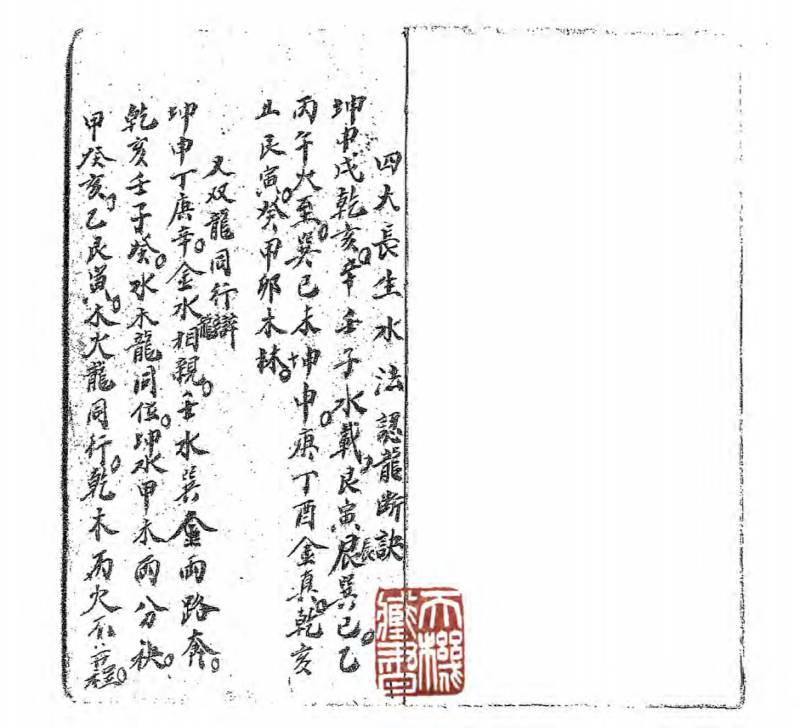 四大長生水法認龍断訣
坤申戌乾亥。辛壬子水載。艮寅辰巽巳。乙
丙午火至。巽巳未坤申。庚丁酉金真。乾亥
丑艮寅。癸甲卯木林。
又双龍同行辯
坤申丁庚辛。金水相親。壬水巽金両路奔。
乾亥壬子癸。水木龍同位。坤水甲木両分。
甲癸亥。乙艮寅。木火龍同行。乾木丙火不程。
天機藏書